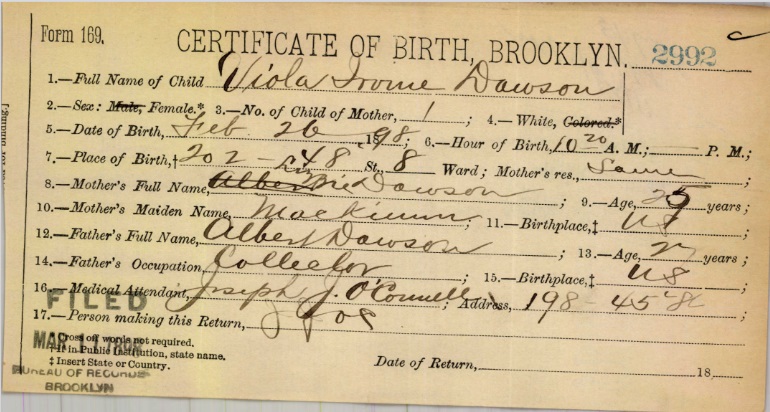 Form 169.
CERTIFICATE OF BIRTH, BROOKLYN. 2992
1.—Full Name of Child Viola Dawson
2.—Sex: Male, Female.* 3.—No. of Child of Mother, 1; 4.—White, Colored.*
5.—Date of Birth, Feb 26 1898. 6.—Hour of Birth, 10 20 A. M.; — P. M.;
7.—Place of Birth,† 202 - 48 St., 8 Ward; Mother's res., Same;
8.—Mother's Full Name, Dawson; 9.—Age, years;
10.—Mother's Maiden Name, MacKinnon; 11.—Birthplace,‡ US;
12.—Father's Full Name, Albert Dawson; 13.—Age, 27 years;
14.—Father's Occupation, Collector; 15.—Birthplace,‡ US
16.—Medical Attendant, Joseph J. O'Connell; Address, 198 - 45 St
17.—Person making this Return,
FILED
MAR
* Cross off words not required.
† If in Public Institution, state name.
‡ Insert State or Country.
Date of Return, 18
BUREAU OF RECORDS
BROOKLYN